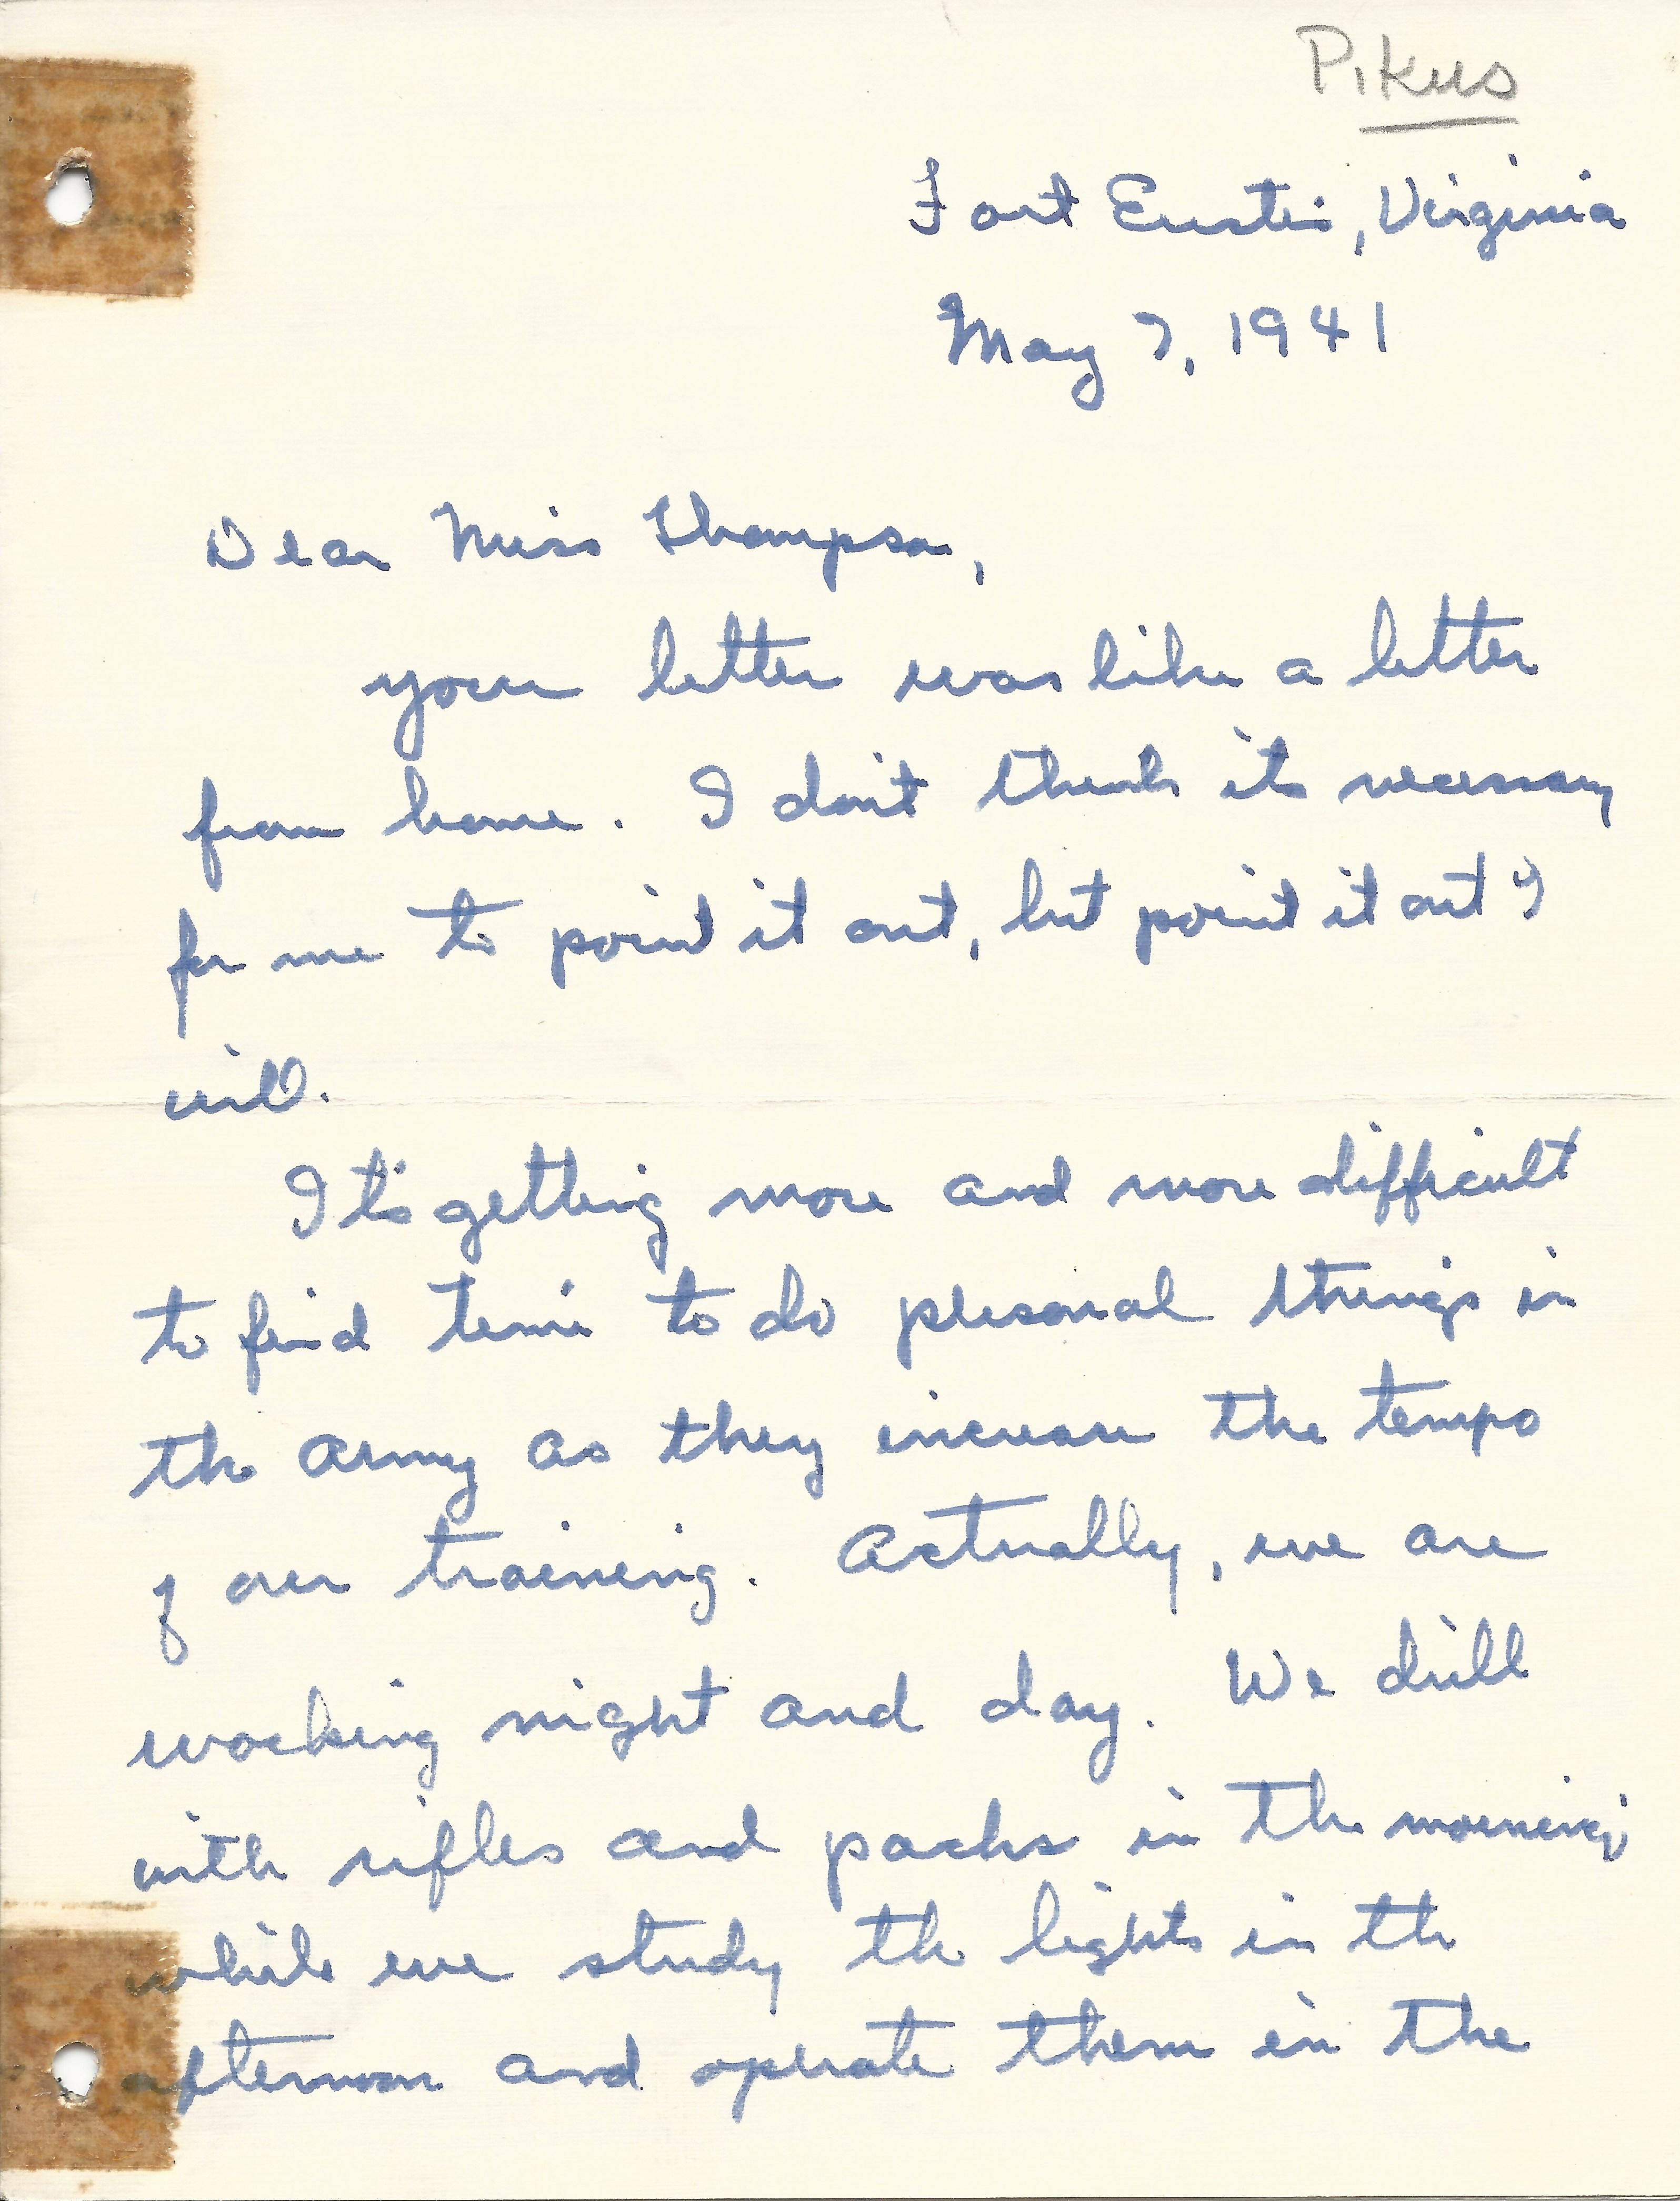 Pikus
Fort Eustis, Virginia
May 7, 1941
Dear Miss Thompson,
your letter was like a letter
from home. I don't think its necessary
for me to point it out, but point it out I
will.
It's getting more and more difficult
to find time to do personal things in
the army as they increase the tempo
of our training. Actually, we are
working night and day. We drill
with rifles and packs in the morning
while we study the lights in the
afternoon and operate them in the